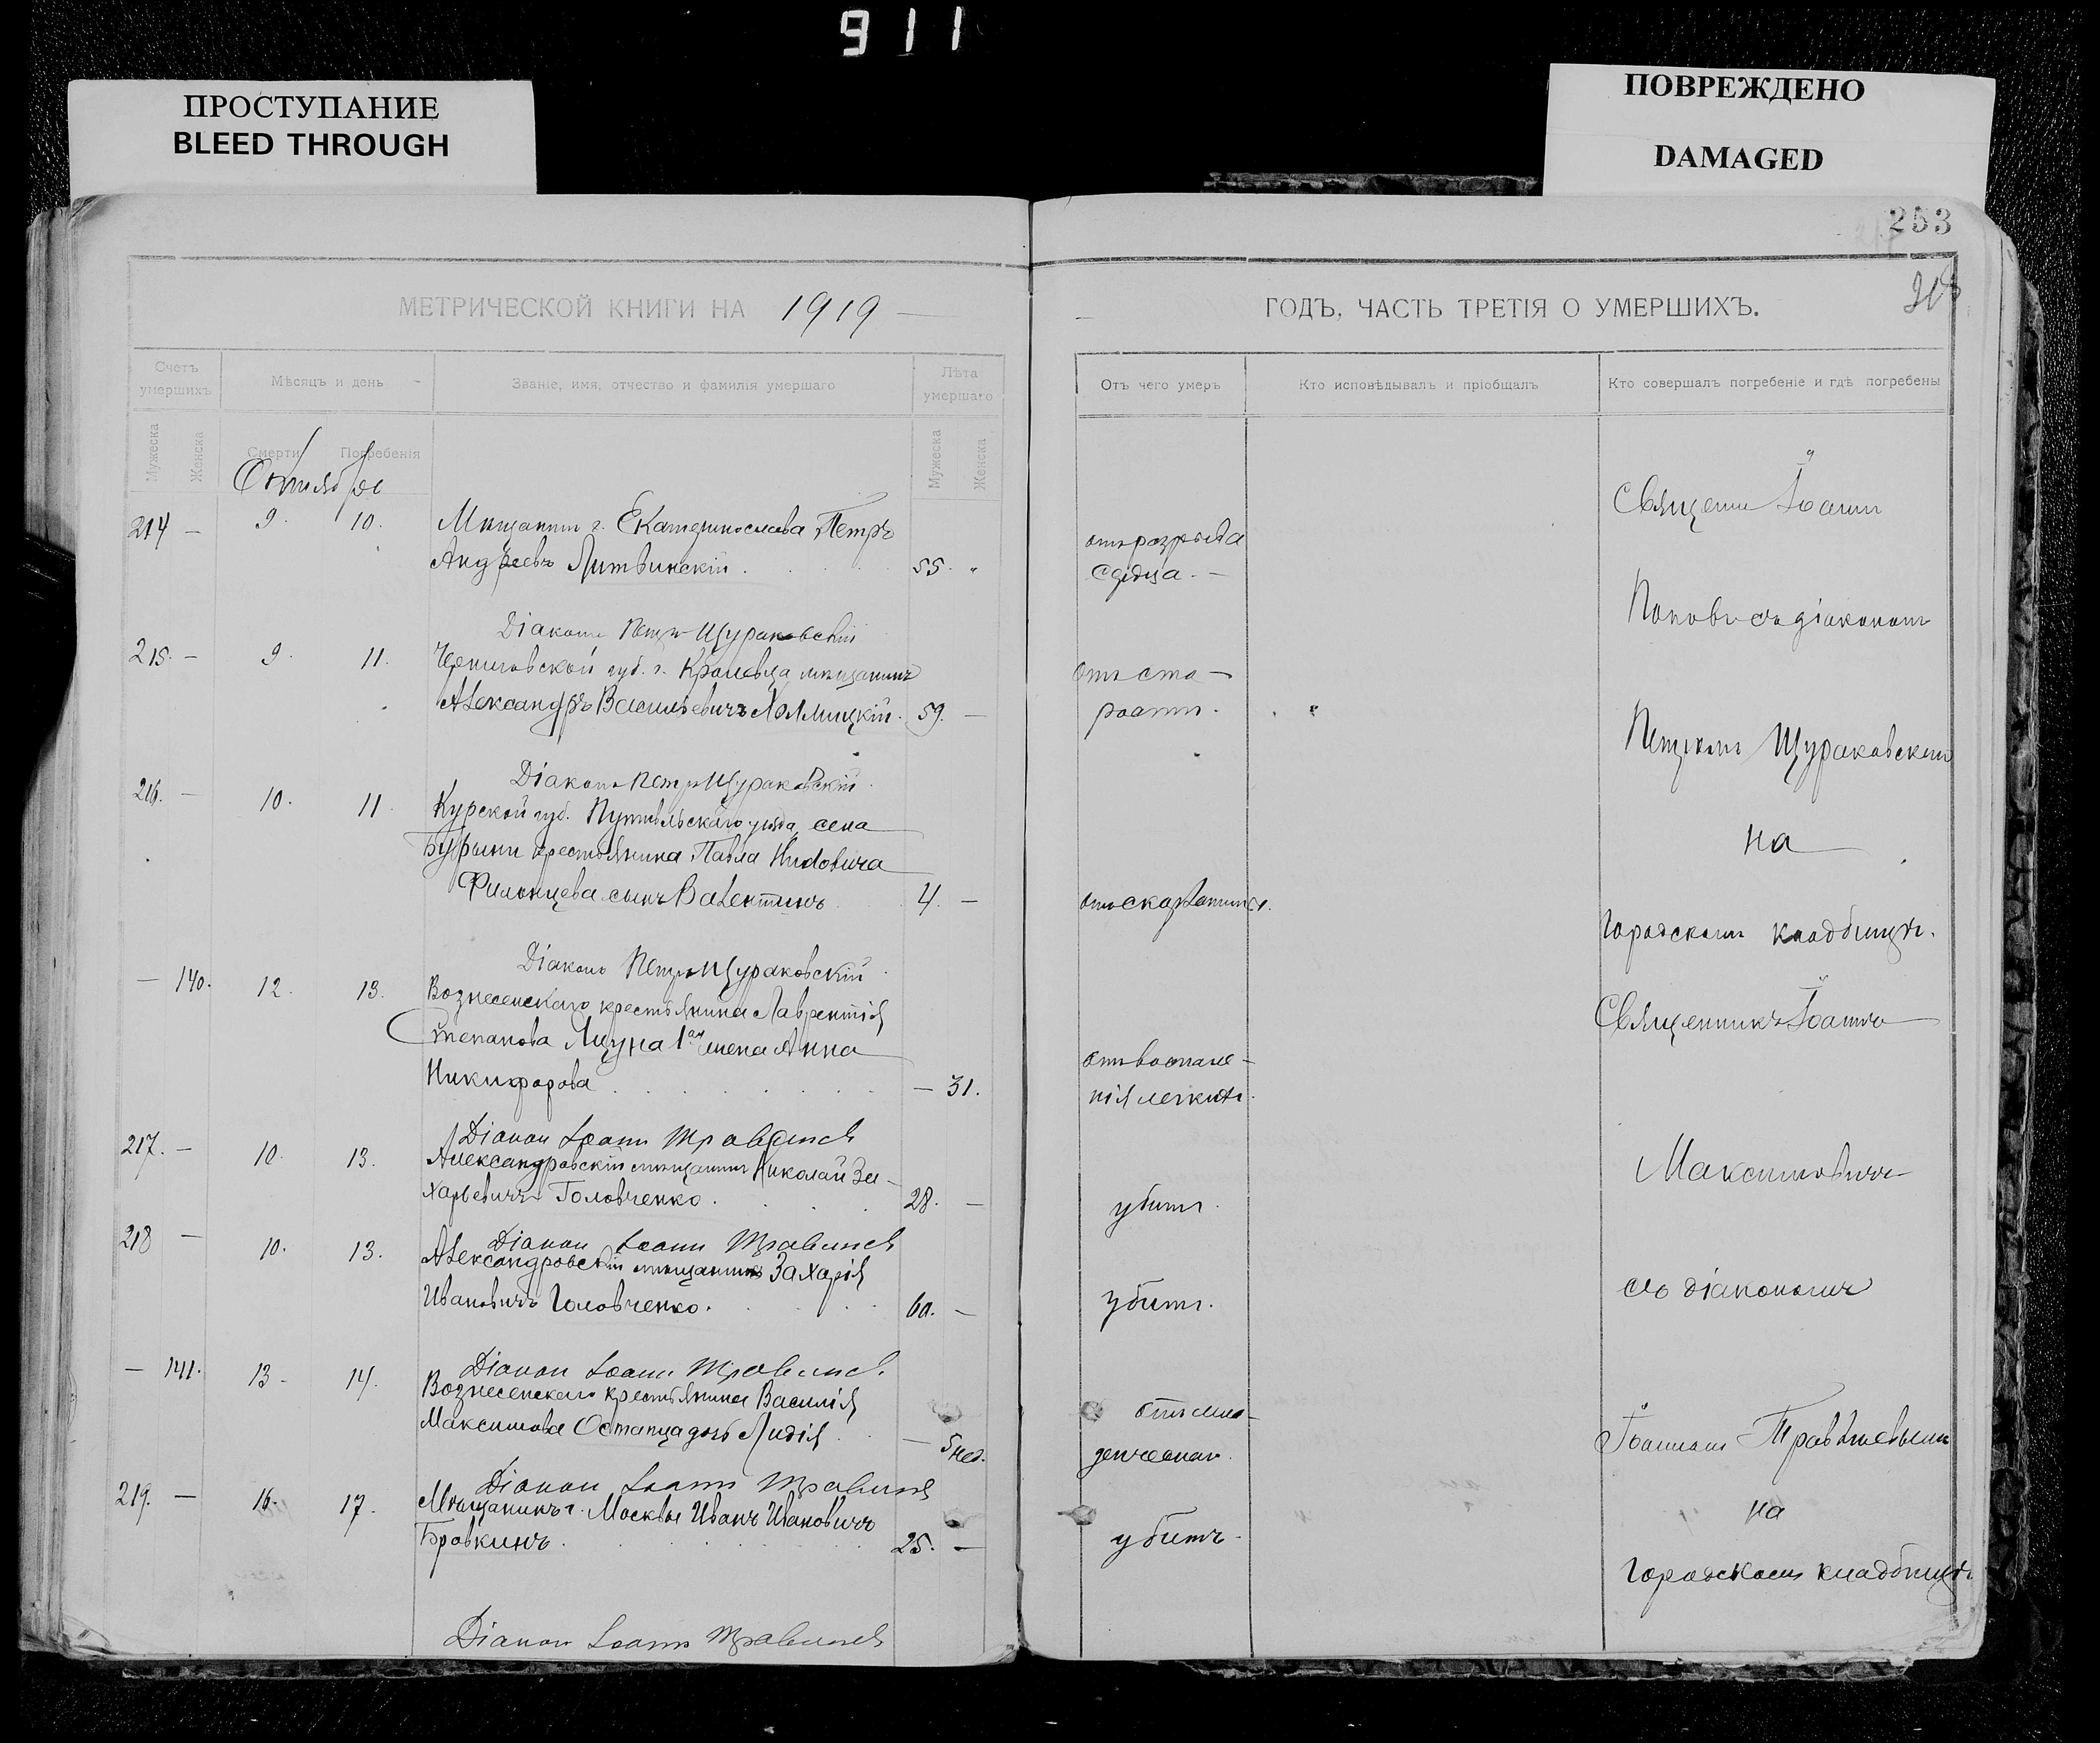 911
ПРОСТУПАНИЕ
BLEED THROUGH
ПОВРЕЖДЕНО
DAMAGED
253
МЕТРИЧЕСКОЙ КНИГИ НА 1919
Счетъ умершихъ
Мѣсяцъ и день
Званіе, имя, отчество и фамилія умершаго
Лѣта умершаго
Мужеска
Женска
Смерти
Погребенія
Мужеска
Женска
Октябрь
214 — 9. 10. Мѣщанин г. Екатеринослава Петръ
Андреевъ Литвинскій . 55. "
Діаконъ Петръ Щураковскій
215. — 9. 11. Черниговской губ. г. Кролевца мѣщанинъ
Александръ Васильевичъ Холмицкій. 59. —
Діаконъ Петръ Щураковскій
216. — 10. 11 Курской губ. Путивльскаго уѣзда, села
Бурыни крестьянина Павла
Филонцева сынъ Валентинъ 4. —
Діаконъ Петръ Щураковскій
— 140. 12. 13. Вознесенскаго крестьянина Лаврентія
Степанова 1ая жена Анна
Никифорова — 31.
Діакон Іоанн Травинсв
217. — 10. 13. Александровскій мѣщанинъ Николай За-
харьевичъ Головченко. 28. —
Діакон Іоанн Травинсв
218 — 10. 13. Александровскій мѣщанинъ Захарія
Ивановичъ Головченко. 60. —
Діакон Іоанн Травинсв
— 141. 13. 14. Вознесенскаго крестьянина Василія
Максимова Остапца дочь Лидія — 5 нед.
Діакон Іоанн Травинсв
219. — 16. 17. Мѣщанинъ г. Москвы Иванъ Ивановичъ
Бровкинъ. 25. —
Діакон Іоанн Травинсв
ГОДЪ, ЧАСТЬ ТРЕТІЯ О УМЕРШИХЪ.
Отъ чего умеръ
Кто исповѣдывалъ и пріобщалъ
Кто совершалъ погребеніе и гдѣ погребены
отъ разрыва
сердца. —
отъ ста-
рости.
отъ скарлатины.
отъ воспале-
нія легкихъ.
убитъ.
убитъ.
отъ мла-
денческой.
убитъ.
Священ Іоанн
Поповъ съ діаконом
Петромъ Щураковским
на
Городскомъ кладбищѣ.
Священникъ Іоаннъ
Максимовичъ
съ діакономъ
Іоанномъ
на
Городскомъ кладбищѣ.